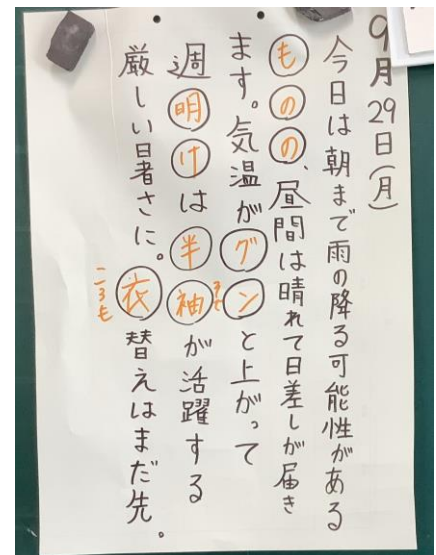 9月29日(月)
今日は朝まで雨の降る可能性がある
ものの、昼間は晴れて日差しが届き
ます。気温がグンと上がって
週明けは半袖が活躍する
そで
厳しい暑さに。衣替えはまだ先。
ころも